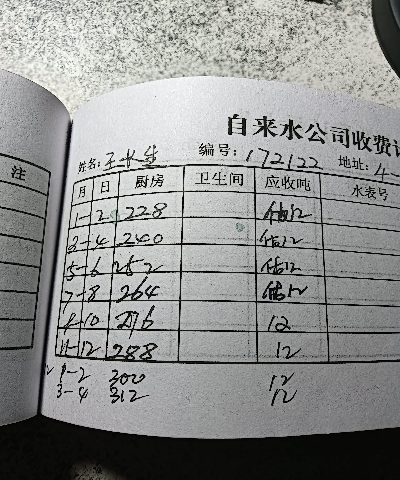 注
自来水公司收费
姓名: 王长生 编号: 172122 地址: 4-
月 日 厨房 卫生间 应收吨 水表号
1-2 228 估12
3-4 240 估12
5-6 252 估12
7-8 264 估12
9-10 276 12
11-12 288 12
1-2 300 12
3-4 312 12